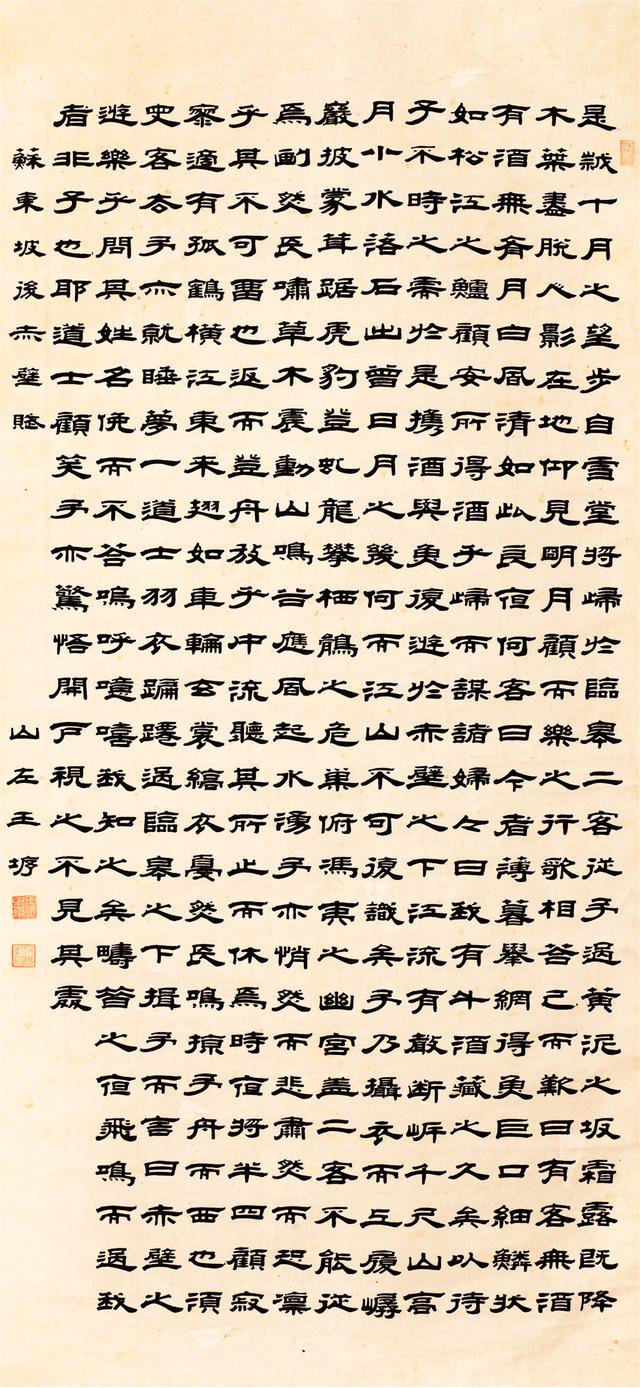 是歲十月之望步自雪堂將歸於臨皋二客從予過黃泥之坂霜露既降
木葉盡脫人影在地仰見明月顧而樂之行歌相答已而歎曰有客無酒
有酒無肴月白風清如此良夜何客曰今者薄暮舉網得魚巨口細鱗狀
如松江之鱸顧安所得酒乎歸而謀諸婦々曰我有斗酒藏之久矣以待
子不時之需於是攜酒與魚復遊於赤壁之下江流有聲斷岸千尺山高
月小水落石出曾日月之幾何而江山不可復識矣予乃攝衣而上履巉
巖披蒙茸踞虎豹登虬龍攀栖鶻之危巢俯馮夷之幽宮蓋二客不能從
焉劃然長嘯草木震動山鳴谷應風起水湧予亦悄然而悲肅然而恐凜
乎其不可留也返而登舟放乎中流聽其所止而休焉時夜將半四顧寂
寥適有孤鶴橫江東來翅如車輪玄裳縞衣戛然長鳴掠予舟而西也須
臾客去予亦就睡夢一道士羽衣蹁躚過臨皋之下揖予而言曰赤壁之
遊樂乎問其姓名俛而不答嗚呼噫嘻我知之矣疇昔之夜飛鳴而過我
者非子也耶道士顧笑予亦驚悟開戶視之不見其處
蘇東坡後赤壁賦
山左王垿